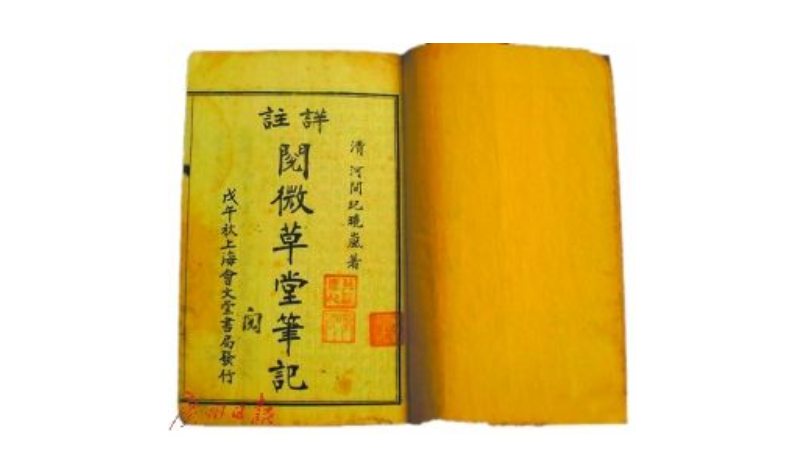 清 河間紀曉嵐著
詳註
閱微草堂筆記
閱
戊午秋上海會文堂書局發行
廣州日报